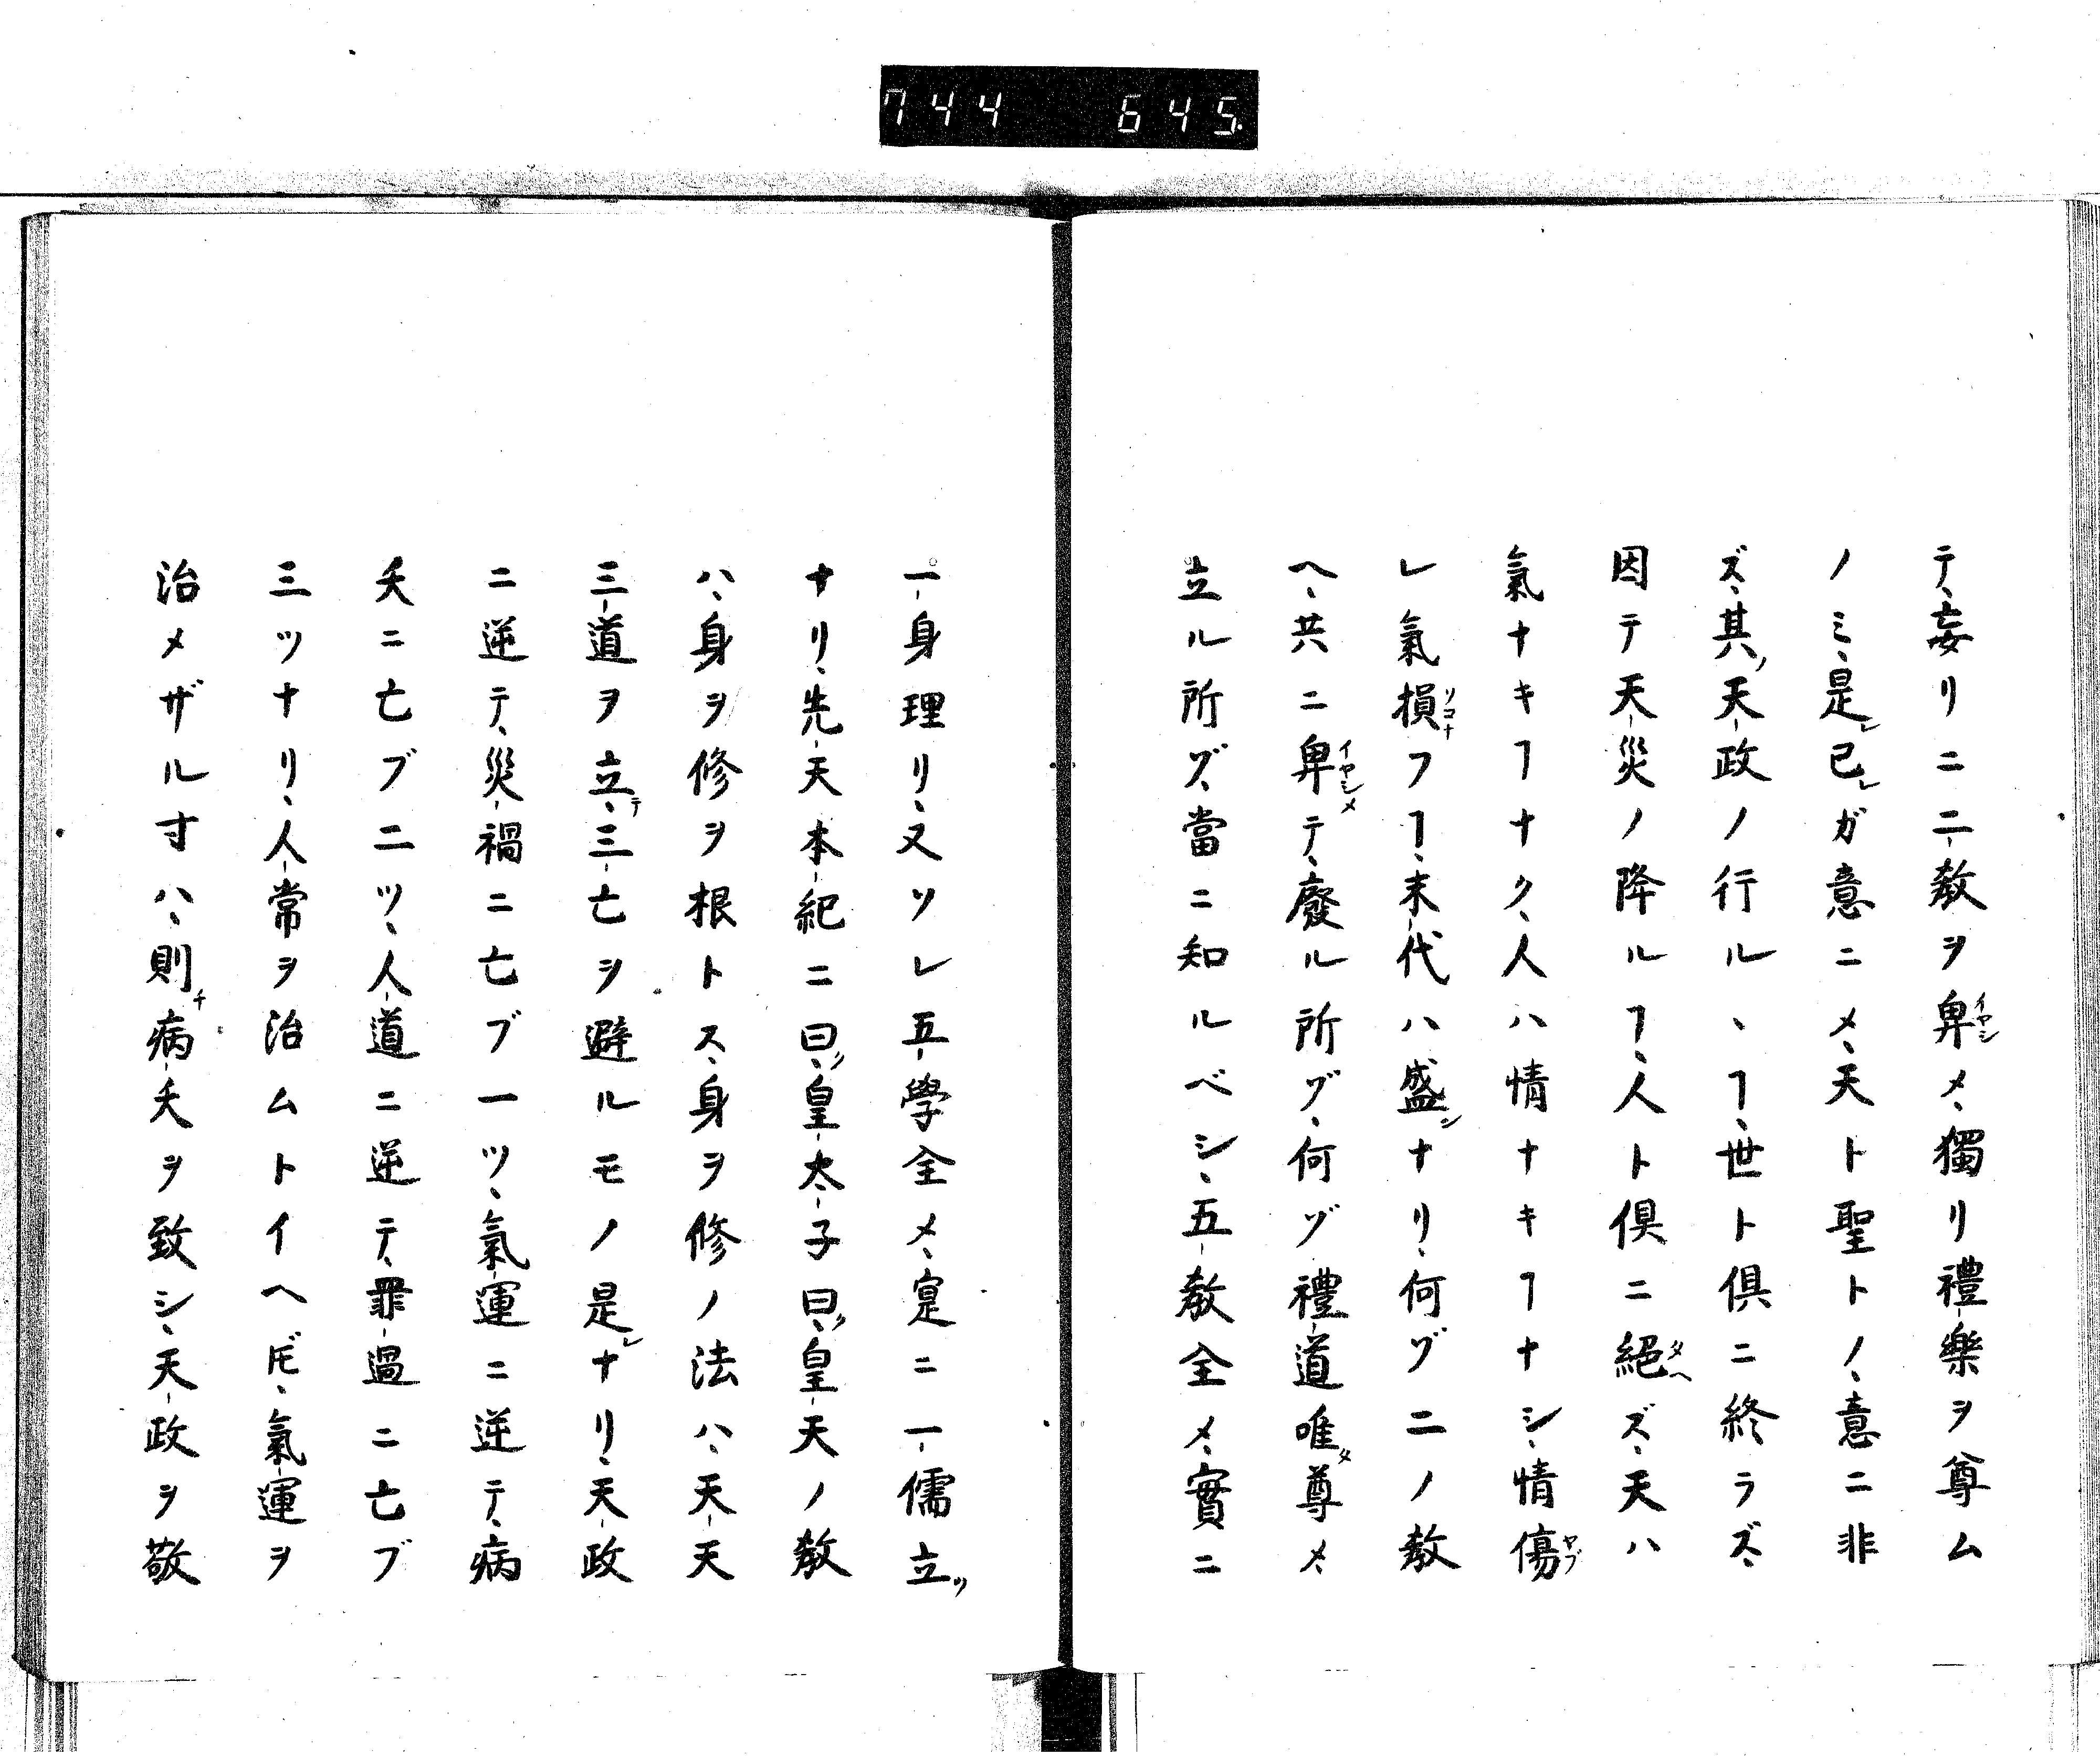 744 645
テ、妄リニ二教ヲ卑メ、獨リ禮樂ヲ尊ム
ノミ、是レ已レガ意ニメ、天ト聖トノ、意ニ非
ズ、其ノ天政ノ行ルヽヿ、世ト倶ニ終ラズ、
因テ天災ノ降ルヿ、人ト倶ニ絕ヘズ、天ハ
氣ナキヿナク、人ハ情ナキヿナシ、情傷
レ氣損フヿ、末代ハ盛ンナリ、何ゾ二ノ教
ヘ、共ニ卑テ、廢ル所ゾ、何ゾ禮道唯尊メ、
立ル所ゾ、當ニ知ルベシ、五教全メ、實ニ
一身理リ、又ソレ五學全メ、寔ニ一儒立ツ
ナリ、先天本紀ニ曰、皇太子曰、皇天ノ教
ハ、身ヲ修ヲ根トス、身ヲ修ノ法ハ、天天
三道ヲ立テ、三亡ヲ避ルモノ是レナリ、天政
ニ逆テ、災禍ニ亡ブ一ツ、氣運ニ逆テ、病
夭ニ亡ブ二ツ、人道ニ逆テ、罪過ニ亡ブ
三ツナリ、人常ヲ治ムトイヘ𪜈、氣運ヲ
治メザル寸ハ、則チ病夭ヲ致シ、天政ヲ敬